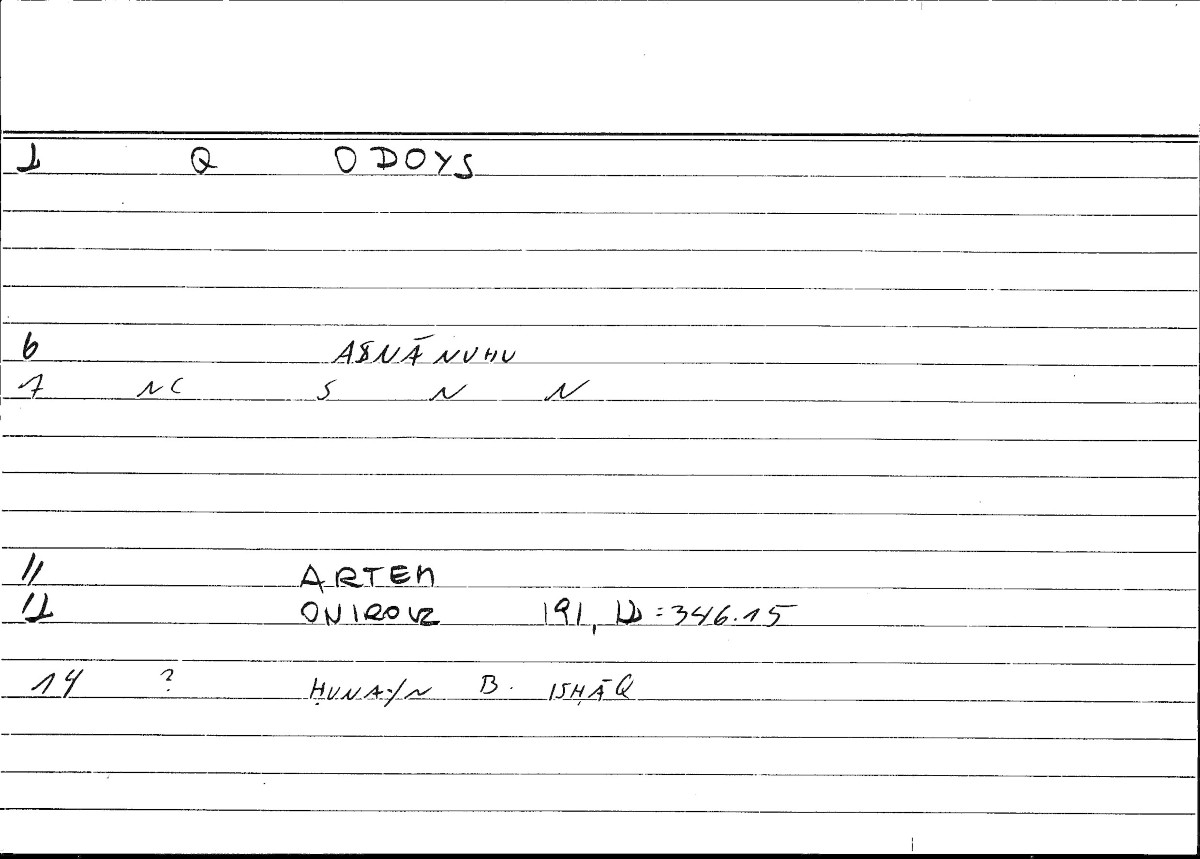 1 Q ODOYS
6 A8NĀNUHU
7 NC S N N
11 ARTEM
12 ONIROCR 191, 12 = 346.15
14 ? ḤUNAYN B. ISḤĀQ